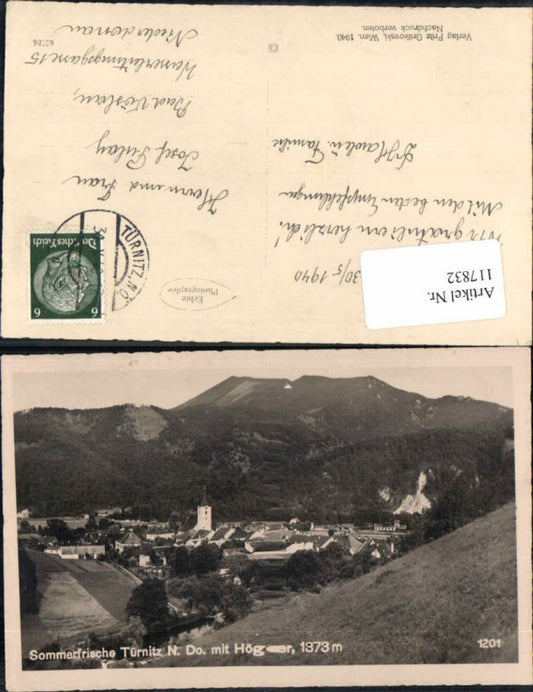 Verlag Fritz Gnikovski, Wien. 1940.
Nachdruck verboten.
Artikel Nr.
117832
30/5 1940
Wir gratulieren herzlich!
Mit den besten Empfehlungen
Familie
Echte
Photographie
6 6
Deutsches Reich
TÜRNITZ, N.Ö.
Herrn und Frau
Josef
Bad Vöslau,
15
Niederdonau
Sommerfrische Türnitz N. Do. mit Hög er, 1373 m
1201